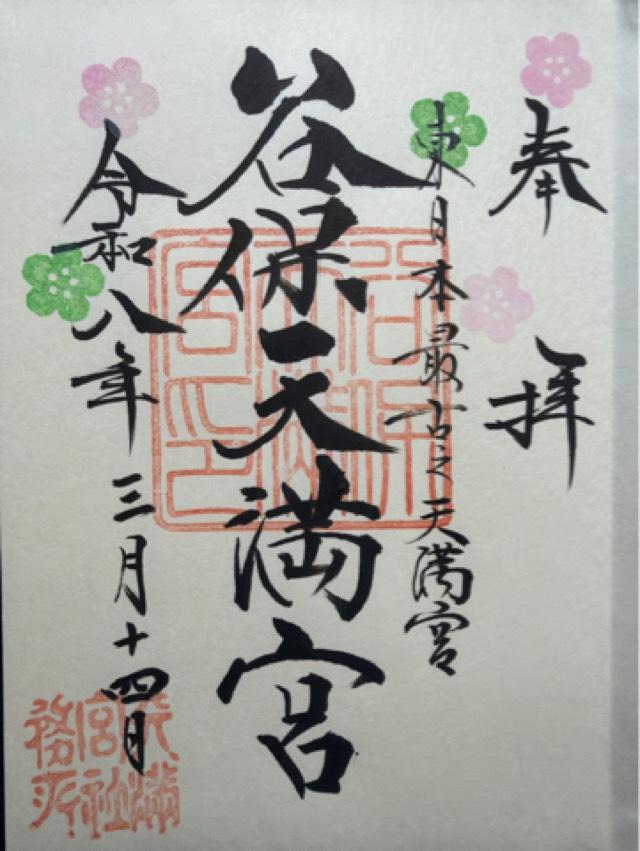 奉拝
東日本最古之天満宮
谷保天満宮
谷保天満宮印
令和八年三月十四日
天満宮社務所